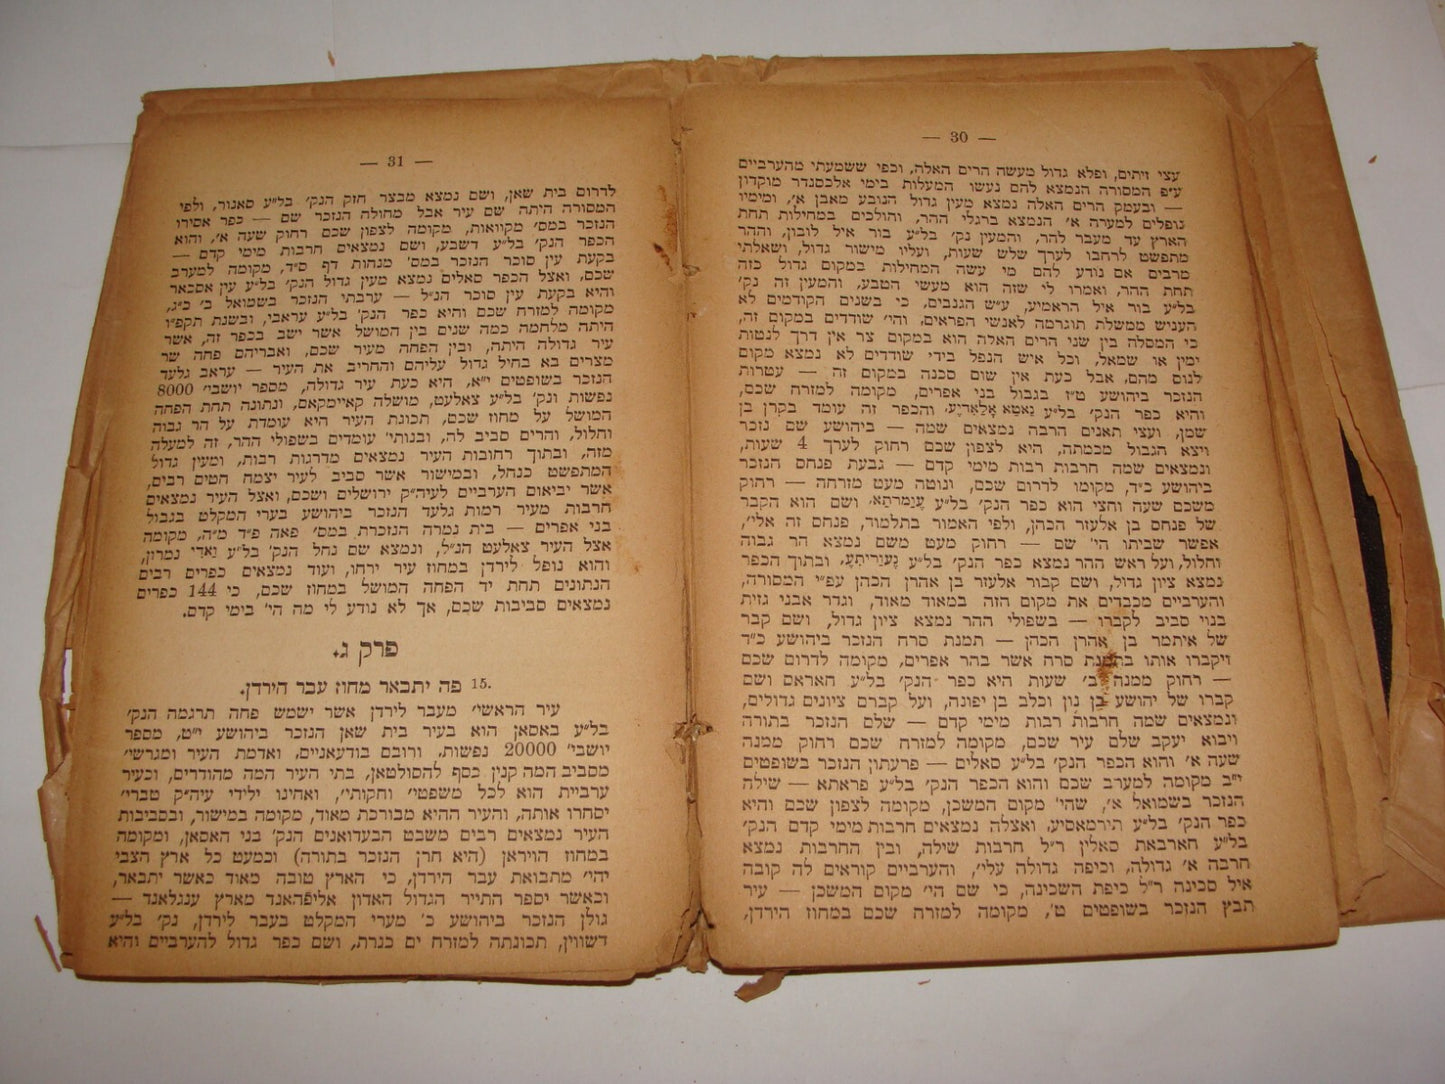 — 30 —
עצי זיתים, ופלא גדול מעשה הרים האלה, וכפי ששמעתי מהערביים
ע״פ המסורה הנמצא להם נעשו המעלות בימי אלכסנדר מוקדון
— ובעמק הרים האלה נמצא מעין גדול הנובע מאבן א׳, ומימיו
נופלים למערה א׳ הנמצא ברגלי ההר, והולכים במחילות תחת
הארץ עד מעבר להר, והמעין נק׳ בל״ע בור איל לובון, וההר
מתפשט לרחבו לערך שלש שעות, ועליו מישור גדול, ושאלתי
מרבים אם נודע להם מי עשה המחילות במקום גדול כזה
תחת ההר, ואמרו לי שזה הוא מעשי הטבע, והמעין זה נק׳
בל״ע בור איל הראמיע, ע״ש הגנבים, כי בשנים הקודמים לא
העניש ממשלת תוגרמה לאנשי הפראים, והי׳ שודדים במקום זה,
כי המסלה בין שני הרים האלה הוא במקום צר אין דרך לנטות
ימין או שמאל, וכל איש הנפל בידי שודדים לא נמצא מקום
לנוס מהם, אבל כעת אין שום סכנה במקום זה — עטרות
הנזכר ביהושע ט״ז בגבול בני אפרים, מקומה למזרח שכם,
והיא כפר הנק׳ בל״ע והכפר זה עומד בקרן בן
שמן, ועצי תאנים הרבה נמצאים שמה — ביהושע שם נזכר
ויצא הגבול מכמתה, היא לצפון שכם רחוק לערך 4 שעות,
ונמצאים שמה חרבות רבות מימי קדם — גבעת פנחס הנזכר
ביהושע כ״ד, מקומו לדרום שכם, ונוטה מעט מזרחה — רחוק
משכם שעה וחצי הוא כפר הנק׳ בל״ע עַוַמרתַא, ושם הוא הקבר
של פנחס בן אלעזר הכהן, ולפי האמור בתלמוד, פנחס זה אלי׳,
אפשר שביתו הי׳ שם — רחוק מעט משם נמצא הר גבוה
וחלול, ועל ראש ההר נמצא כפר הנק׳ בל״ע ובתוך הכפר
נמצא ציון גדול, ושם קבור אלעזר בן אהרן הכהן עפ״י המסורה,
והערביים מכבדים את מקום הזה במאוד מאוד, וגדר אבני גזית
בנוי סביב לקברו — בשפולי ההר נמצא ציון גדול, ושם קבר
של איתמר בן אהרן הכהן — תמנת סרח הנזכר ביהושע כ״ד
ויקברו אותו בתמנת סרח אשר בהר אפרים, מקומה לדרום שכם
— רחוק ממנה ב׳ שעות היא כפר הנק׳ בל״ע האראם ושם
קברו של יהושע בן נון וכלב בן יפונה, ועל קברם ציונים גדולים,
ונמצאים שמה חרבות רבות מימי קדם — שלם הנזכר בתורה
ויבוא יעקב שלם עיר שכם, מקומה למזרח שכם רחוק ממנה
שעה א׳ והוא הכפר הנק׳ בל״ע סאלים — פרעתון הנזכר בשופטים
י״ב מקומה למערב שכם והוא הכפר הנק׳ בל״ע פראתא — שילה
הנזכר בשמואל א׳, שהי׳ מקום המשכן, מקומה לצפון שכם והיא
כפר הנק׳ בל״ע תירמאסיע, ואצלה נמצאים חרבות מימי קדם הנק׳
בל״ע חארבאת סאלין ר״ל חרבות שילה, ובין החרבות נמצא
חרבה א׳ גדולה, וכיפה גדולה עלי׳, והערביים קוראים לה קובה
איל סכינה ר״ל כיפת השכינה, כי שם הי׳ מקום המשכן — עיר
תבץ הנזכר בשופטים ט׳, מקומה למזרח שכם במחוז הירדן,
— 31 —
לדרום בית שאן, ושם נמצא מבצר חזק הנק׳ בל״ע סאנור, ולפי
המסורה היתה שם עיר אבל מחולה הנזכר שם — כפר אסירו
הנזכר במס׳ מקוואות, מקומה לצפון שכם רחוק שעה א׳, והוא
הכפר הנק׳ בל״ע דשבע, ושם נמצאים חרבות מימי קדם —
בקעת עין סוכר הנזכר במס׳ מנחות דף ס״ד, מקומה למערב
שכם, ואצל הכפר סאלים נמצא מעין גדול הנק׳ בל״ע עין אסכאר
והיא בקעת עין סוכר הנ״ל — ערבתי הנזכר בשמואל ב׳ כ״ג,
מקומה למזרח שכם והיא כפר הנק׳ בל״ע עראבי, ובשנת תקפ״ו
היתה מלחמה כמה שנים בין המושל אשר ישב בכפר זה, אשר
עיר גדולה היתה, ובין הפחה מעיר שכם, ואבריהם פחה שר
מצרים בא בחיל גדול עליהם והחריב את העיר — עראב גלעד
הנזכר בשופטים י״א, היא כעת עיר גדולה, מספר יושבי׳ 8000
נפשות ונק׳ בל״ע צאלעט, מושלה קאיימקאם, ונתונה תחת הפחה
המושל על מחוז שכם, תכונת העיר היא עומדת על הר גבוה
וחלול, והרים סביב לה, ובנותי׳ עומדים בשפולי ההר, זה למעלה
מזה, ובתוך רחובות העיר נמצאים מדרגות רבות, ומעין גדול
המתפשט כנחל, ובמישור אשר סביב לעיר יצמח חטים רבים,
אשר יביאום הערביים לעיה״ק ירושלים ושכם, ואצל העיר נמצאים
חרבות מעיר רמות גלעד הנזכר ביהושע בערי המקלט בגבול
בני אפרים — בית נמרה הנזכרת במס׳ פאה פ״ד מ״ה, מקומה
אצל העיר צאלעט הנ״ל, ונמצא שם נחל הנק׳ בל״ע וַאדי נמרון,
והוא נופל לירדן במחוז עיר יריחו, ועוד נמצאים כפרים רבים
הנתונים תחת יד הפחה המושל במחוז שכם, כי 144 כפרים
נמצאים סביבות שכם, אך לא נודע לי מה הי׳ בימי קדם.
פרק ג.
15. פה יתבאר מחוז עבר הירדן.
עיר הראשי׳ מעבר לירדן אשר ישמש פחה תרגמה הנק׳
בל״ע באסאן הוא בעיר בית שאן הנזכר ביהושע י״ט, מספר
יושבי׳ 20000 נפשות, ורובם בודעאניים, ואדמת העיר ומגרשי׳
מסביב המה קנין כסף להסולטאן, בתי העיר המה מהודרים, וכעיר
ערביית הוא לכל משפטי׳ וחקותי׳, ואחינו ילידי עיה״ק טברי׳
יסחרו אותה, והעיר ההיא מבורכת מאוד, מקומה במישור, ובסביבות
העיר נמצאים רבים משבט הבעדואנים הנק׳ בני האסאן, ומקומה
במחוז הויראן (היא חרן הנזכר בתורה) וכמעט כל ארץ הצבי
יהי׳ מתבואת עבר הירדן, כי הארץ טובה מאוד כאשר יתבאר,
וכאשר יספר התייר הגדול האדון אליפהאנד מארץ ענגלאנד —
גולן הנזכר ביהושע כ׳ מערי המקלט בעבר לירדן, נק׳ בל״ע
דשווין, תכונתה למזרח ים כנרת, ושם כפר גדול להערביים והיא